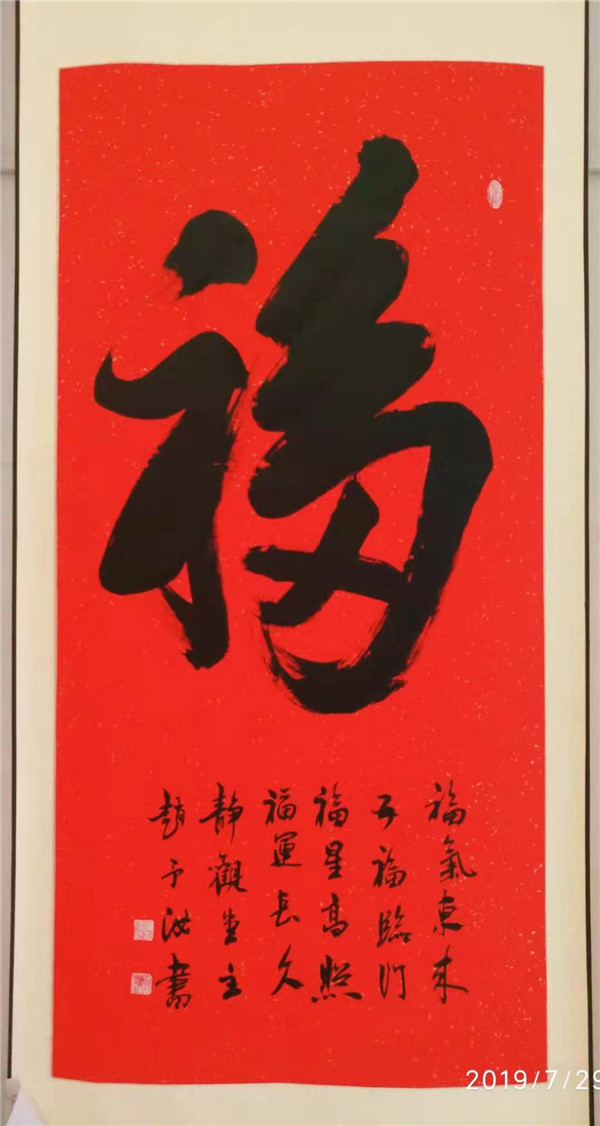 福
福氣東来
五福臨门
福星高照
福運长久
靜觀堂主
趙予洪書
2019/7/29